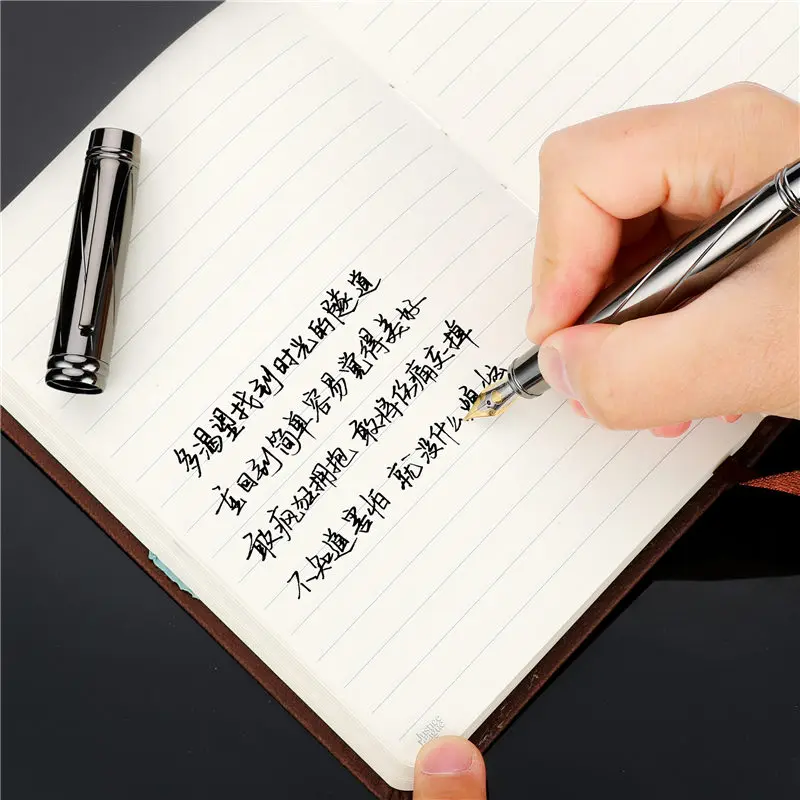 多渴望找到时光的隧道
重回到简单容易觉得美好
敢疯狂拥抱 敢将伤痛交掉
不知道害怕 就没什么烦恼
Justice